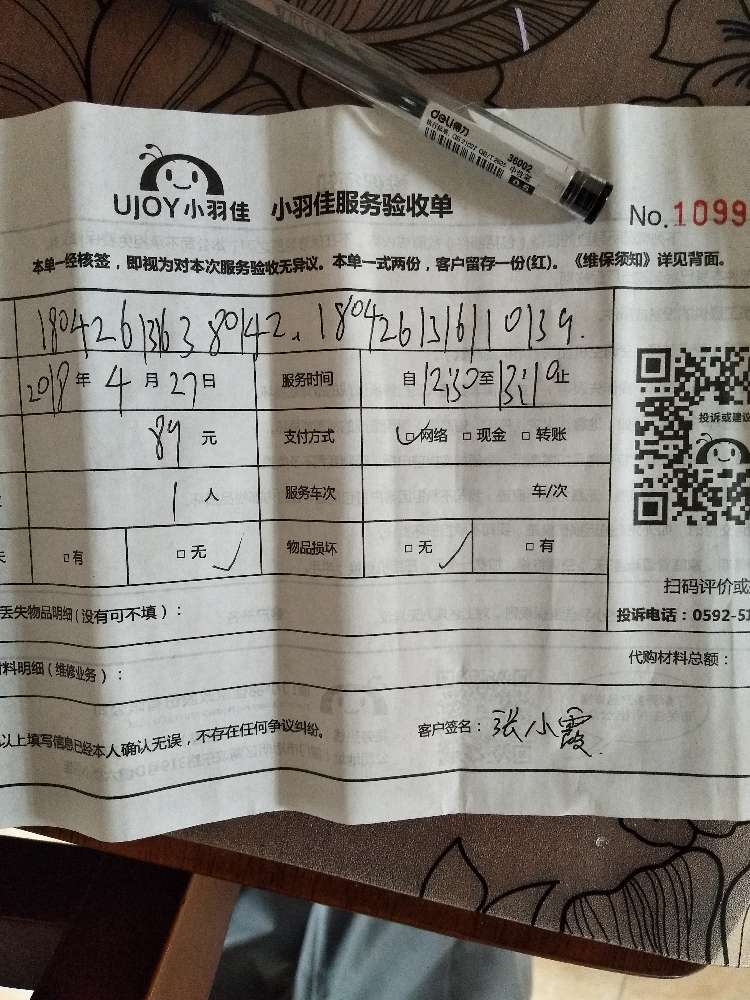 deli得力
36002
小自在
0.5
UJOY小羽佳 小羽佳服务验收单
No.1099
本单一经核签，即视为对本次服务验收无异议。本单一式两份，客户留存一份(红)。《维保须知》详见背面。
180426136380142、180426131611039.
2018年4月27日 服务时间 自12:30至13:10止
89元 支付方式 □网络 □现金 □转账
投诉或建议
1人 服务车次 车/次
□有 □无 物品损坏 □无 □有
扫码评价或
丢失物品明细(没有可不填)：
投诉电话：0592-51
料明细(维修业务)：
代购材料总额：
以上填写信息已经本人确认无误，不存在任何争议纠纷。 客户签名：张小霞